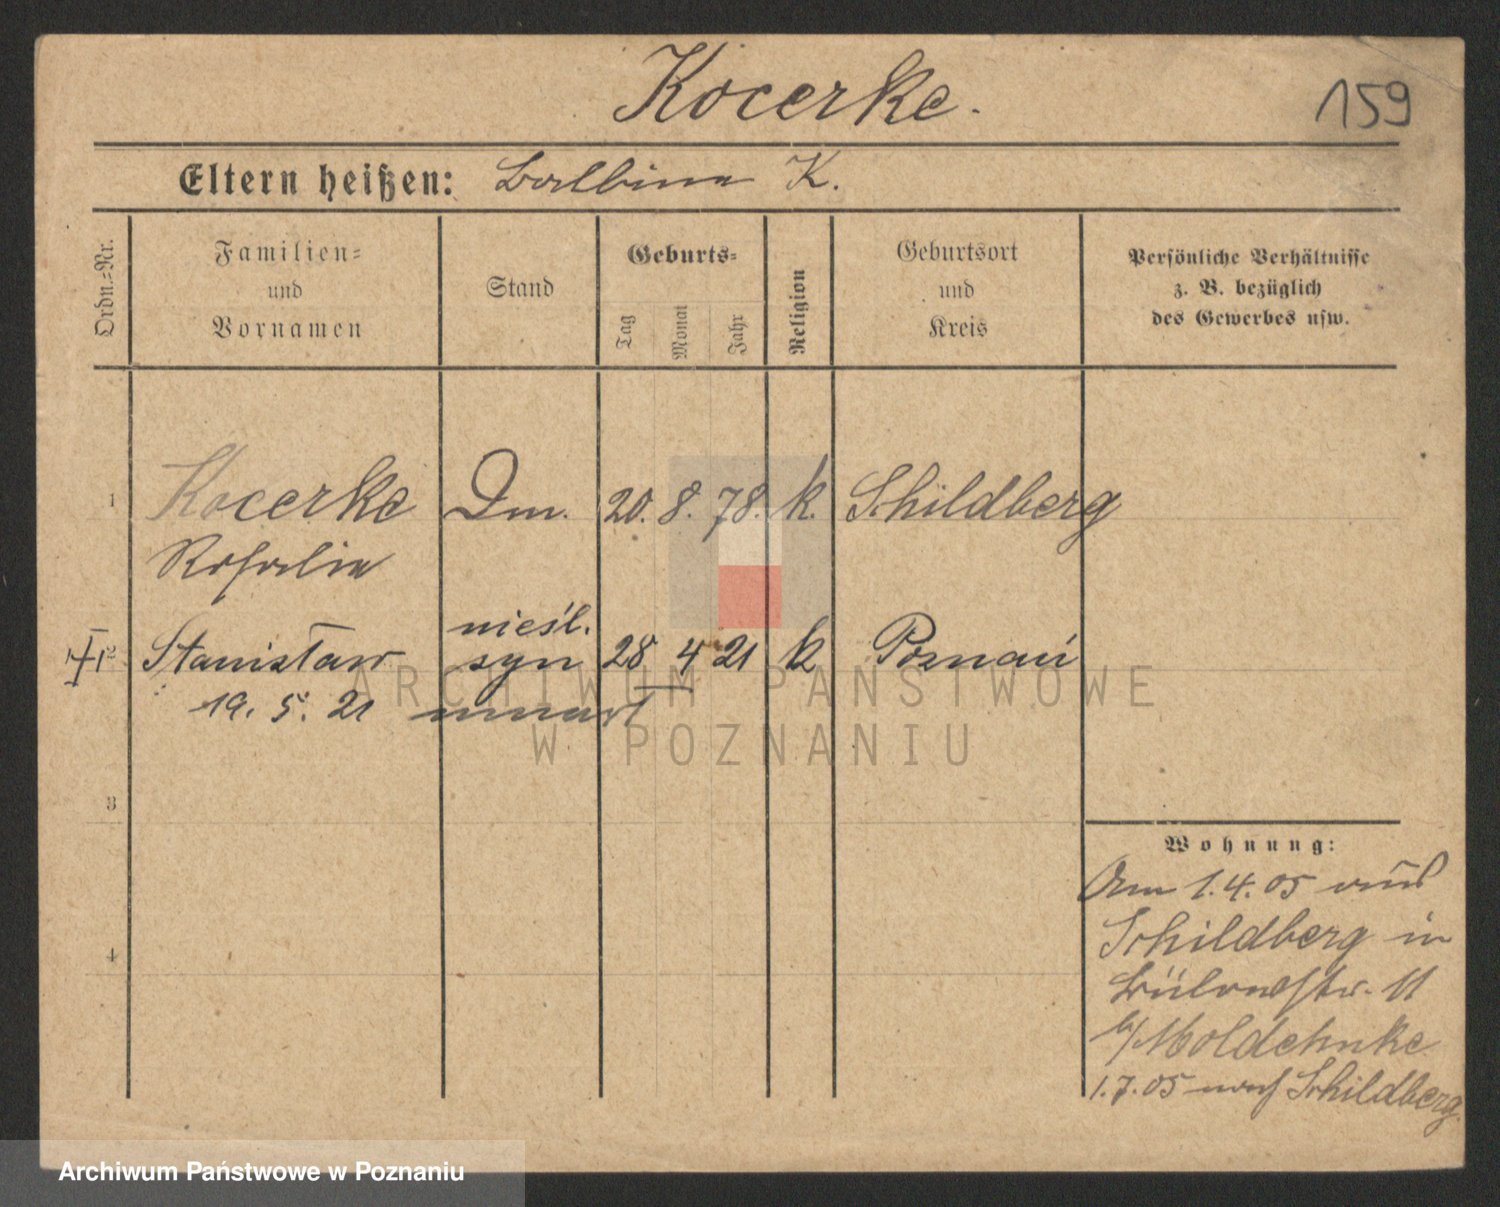 Kocerke.
159
Eltern heißen: Balbina K.
Ordn.=Nr.
Familien=
und
Vornamen
Stand
Geburts=
Tag
Monat
Jahr
Religion
Geburtsort
und
Kreis
Persönliche Verhältnisse
z. B. bezüglich
des Gewerbes usw.
1
Kocerke Dm. 20. 8. 78. k. Schildberg
Rosalia
nieśl.
2 Stanisław syn 28 4 21 k Poznań
19. 5. 21 umarł
ARCHIWUM PAŃSTWOWE
W POZNANIU
3
4
Wohnung:
Am 1.4.05 aus
Schildberg in
Bülowstr. 11
b/Moldehnke
1.7.05 nach Schildberg.
Archiwum Państwowe w Poznaniu